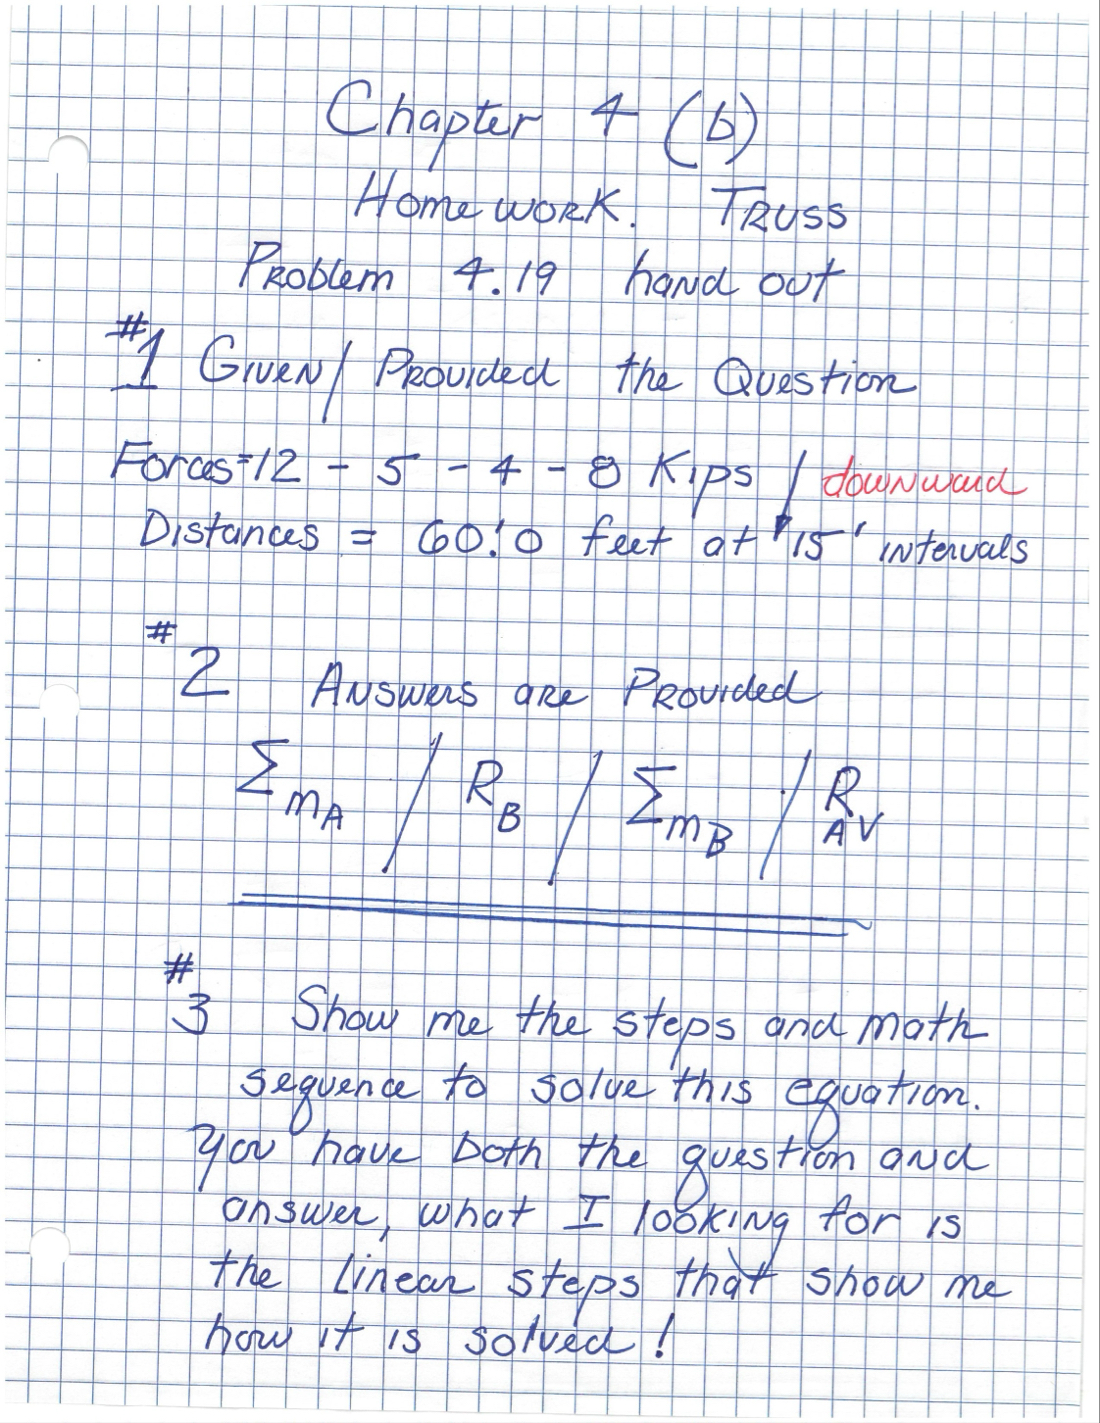 Chapter 4 (b)
Homework. Truss
Problem 4.19 hand out
#1 Given/Provided the Question
Forces=12 - 5 - 4 - 8 Kips / downward
Distances = 60!0 feet at 15' intervals
#2 Answers are Provided
Σ mA / R B / Σ mB / R AV
#3 Show me the steps and math
sequence to solve this equation.
You have both the question and
answer, what I looking for is
the linear steps that show me
how it is solved!